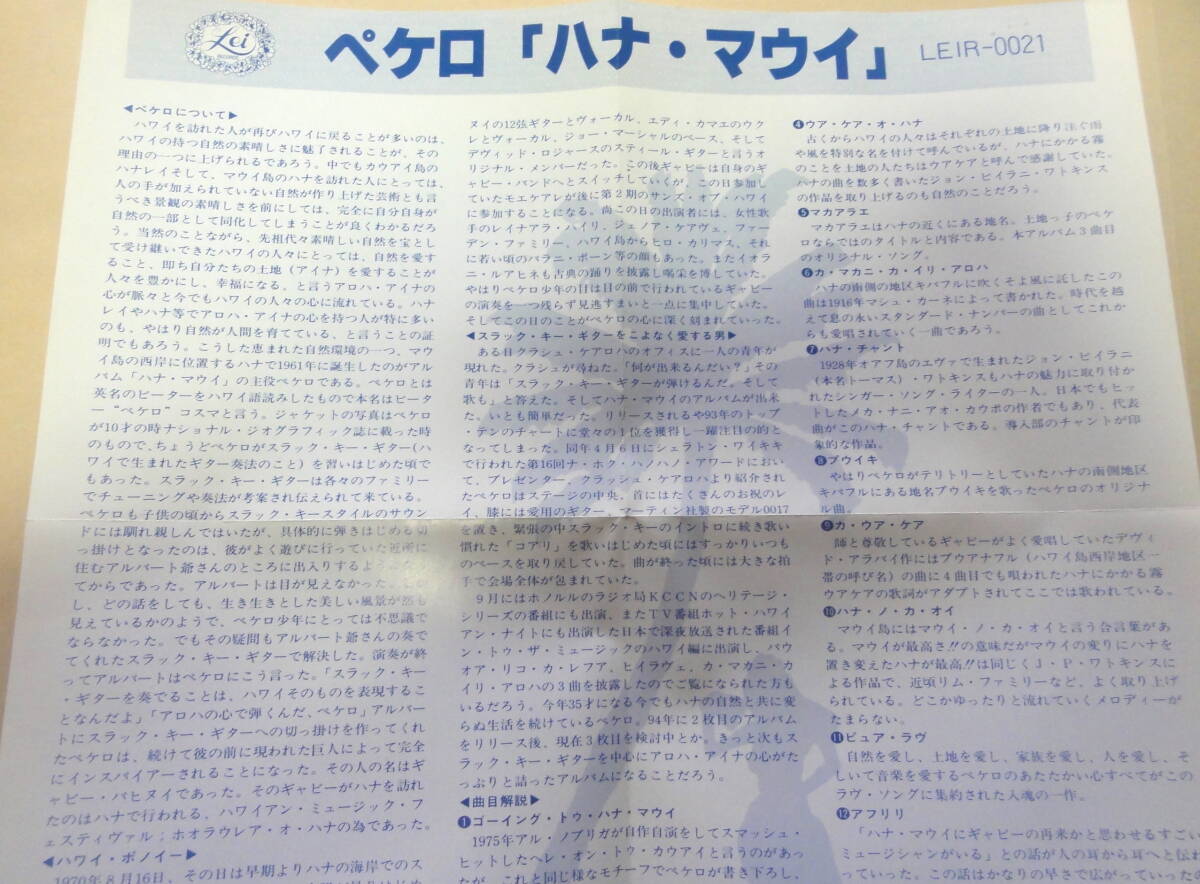 Lei
RECORDS
ペケロ「ハナ・マウイ」
LEIR-0021
◀ペケロについて▶
ハワイを訪れた人が再びハワイに戻ることが多いのは、
ハワイの持つ自然の素晴しさに魅了されることが、その
理由の一つに上げられるであろう。中でもカウアイ島の
ハナレイそして、マウイ島のハナを訪れた人にとっては、
人の手が加えられていない自然が作り上げた芸術とも言
うべき景観の素晴しさを前にしては、完全に自分自身が
自然の一部として同化してしまうことが良くわかるだろ
う。当然のことながら、先祖代々素晴しい自然を宝とし
て受け継いできたハワイの人々にとっては、自然を愛す
ること、即ち自分たちの土地（アイナ）を愛することが
人々を豊かにし、幸福になる。と言うアロハ・アイナの
心が脈々と今でもハワイの人々の心に流れている。ハナ
レイやハナ等でアロハ・アイナの心を持つ人が特に多い
のも、やはり自然が人間を育てている、と言うことの証
明でもあろう。こうした恵まれた自然環境の一つ、マウ
イ島の西岸に位置するハナで1961年に誕生したのがアル
バム「ハナ・マウイ」の主役ペケロである。ペケロとは
英名のピーターをハワイ語読みしたもので本名はピータ
ー“ペケロ”コスマと言う。ジャケットの写真はペケロ
が10才の時ナショナル・ジオグラフィック誌に載った時
のもので、ちょうどペケロがスラック・キー・ギター（ハ
ワイで生まれたギター奏法のこと）を習いはじめた頃で
もあった。スラック・キー・ギターは各々のファミリー
でチューニングや奏法が考案され伝えられて来ている。
ペケロも子供の頃からスラック・キースタイルのサウン
ドには馴れ親しんではいたが、具体的に弾きはじめる切
っ掛けとなったのは、彼がよく遊びに行っていた近所に
住むアルバート爺さんのところに出入りするように
てからであった。アルバートは目が見えなかった。
し、どの話をしても、生き生きとした美しい風景が
見えているかのようで、ペケロ少年にとっては不思議で
ならなかった。でもその疑問もアルバート爺さんの奏で
てくれたスラック・キー・ギターで解決した。演奏が終
ってアルバートはペケロにこう言った。「スラック・キー
・ギターを奏でることは、ハワイそのものを表現するこ
となんだよ」「アロハの心で弾くんだ、ペケロ」アルバー
トにスラック・キー・ギターへの切っ掛けを作ってくれ
たペケロは、続けて彼の前に現われた巨人によって完全
にインスパイアーされることになった。その人の名はギャ
ビー・パヒヌイであった。そのギャビーがハナを訪れ
たのはハナで行われる、ハワイアン・ミュージック・フ
ェスティヴァル；ホオラウレア・オ・ハナの為であった。
◀ハワイ・ポノイー▶
1970年8月16日、その日は早期よりハナの海岸でのス
ヌイの12弦ギターとヴォーカル、エディ・カマエのウク
レとヴォーカル、ジョー・マーシャルのベース、そして
デヴィッド・ロジャースのスティール・ギターと言うオ
リジナル・メンバーだった。この後ギャビーは自身のギ
ャビー・バンドへとスイッチしていくが、この日参加し
ていたモエケアレが後に第2期のサンズ・オブ・ハワイ
に参加することになる。尚この日の出演者には、女性歌
手のレイナアラ・ハイリ、ジェノア・ケアヴェ、ファー
デン・ファミリー、ハワイ島からヒロ・カリマス、それ
に若い頃のパラニ・ボーン等の顔もあった。またイオラ
ニ・ルアヒネも古典の踊りを披露し喝采を博していた。
やはりペケロ少年の目は目の前で行われているギャビー
の演奏を一つ残らず見逃すまいと一点に集中していた。
そしてこの日のことがペケロの心に深く刻まれていった。
◀スラック・キー・ギターをこよなく愛する男▶
ある日クラシュ・ケアロハのオフィスに一人の青年が
現れた。クラシュが尋ねた。「何が出来るんだい？」その
青年は「スラック・キー・ギターが弾けるんだ。そして
歌も」と答えた。そしてハナ・マウイのアルバムが出来
た。いとも簡単だった。リリースされるや93年のトップ
・テンのチャートに堂々の1位を獲得し一躍注目の的と
なってしまった。同年4月6日にシェラトン・ワイキキ
で行われた第16回ナ・ホク・ハノハノ・アワードにおい
て、プレゼンター、クラッシュ・ケアロハより紹介され
たペケロはステージの中央、首にはたくさんのお祝のレ
イ、膝には愛用のギター、マーティン社製のモデル0017
を置き、緊張の中スラック・キーのイントロに続き歌い
慣れた「コアリ」を歌いはじめた頃にはすっかりいつも
のペースを取り戻していた。曲が終った頃には大きな拍
手で会場全体が包まれていた。
9月にはホノルルのラジオ局KCCNのヘリテージ・
シリーズの番組にも出演、またTV番組ホット・ハワイ
アン・ナイトにも出演した日本で深夜放送された番組イ
ン・トゥ・ザ・ミュージックのハワイ編に出演し、パウ
オア・リコ・カ・レフア、ヒイラヴェ、カ・マカニ・カ
イリ・アロハの3曲を披露したのでご覧になられた方も
いるだろう。今年35才になる今でもハナの自然と共に変
らぬ生活を続けているペケロ。94年に2枚目のアルバム
をリリース後、現在3枚目を検討中とか。きっと次もス
ラック・キー・ギターを中心にアロハ・アイナの心がた
っぷりと詰ったアルバムになることだろう。
◀曲目解説▶
❶ゴーイング・トゥ・ハナ・マウイ
1975年アル・ノブリガが自作自演をしてスマッシュ・
ヒットしたヘレ・オン・トゥ・カウアイと言うのがあっ
たが、これと同じ様なモチーフでペケロが書き下ろし、
❹ウア・ケア・オ・ハナ
古くからハワイの人々はそれぞれの土地に降り注ぐ雨
や風を特別な名を付けて呼んでいるが、ハナにかかる霧
のことを土地の人たちはウアケアと呼んで感謝していた。
ハナの曲を数多く書いたジョン・ピイラニ・ワトキンス
の作品を取り上げるのも自然のことだろう。
❺マカアラエ
マカアラエはハナの近くにある地名。土地っ子のペケ
ロならではのタイトルと内容である。本アルバム3曲目
のオリジナル・ソング。
❻カ・マカニ・カ・イリ・アロハ
ハナの南側の地区キパフルに吹くそよ風に託したこの
曲は1916年マシュ・カーネによって書かれた。時代を越
えて息の永いスタンダード・ナンバーの曲としてこれか
らも愛唱されていく一曲であろう。
❼ハナ・チャント
1928年オアフ島のエヴァで生まれたジョン・ピイラニ
（本名トーマス）・ワトキンスもハナの魅力に取り付か
れたシンガー・ソング・ライターの一人。日本でもヒッ
トしたメカ・ナニ・アオ・カウポの作者でもあり、代表
曲がこのハナ・チャントである。導入部のチャントが印
象的な作品。
❽プウイキ
やはりペケロがテリトリーとしていたハナの南側地区
キパフルにある地名プウイキを歌ったペケロのオリジナ
ル曲。
❾カ・ウア・ケア
師と尊敬しているギャビーがよく愛唱していたデヴィ
ド・アラパイ作にはプウアナフル（ハワイ島西岸地区一
帯の呼び名）の曲に4曲目でも唄われたハナにかかる霧
ウアケアの歌詞がアダプトされてここでは歌われている。
❿ハナ・ノ・カ・オイ
マウイ島にはマウイ・ノ・カ・オイと言う合言葉があ
る。マウイが最高さ!!の意味だがマウイの変りにハナを
置き変えたハナが最高!!は同じくJ・P・ワトキンスに
よる作品で、近頃リム・ファミリーなど、よく取り上げ
られている。どこかゆったりと流れていくメロディーが
たまらない。
⓫ピュア・ラヴ
自然を愛し、土地を愛し、家族を愛し、人を愛し、そ
しいて音楽を愛するペケロのあたたかい心すべてがこの
ラヴ・ソングに集約された入魂の一作。
⓬アフリリ
「ハナ・マウイにギャビーの再来かと思わせるすごい
ミュージシャンがいる」との話が人の耳から耳へと伝わ
っていった。この話はかなりの早さで広がっていった